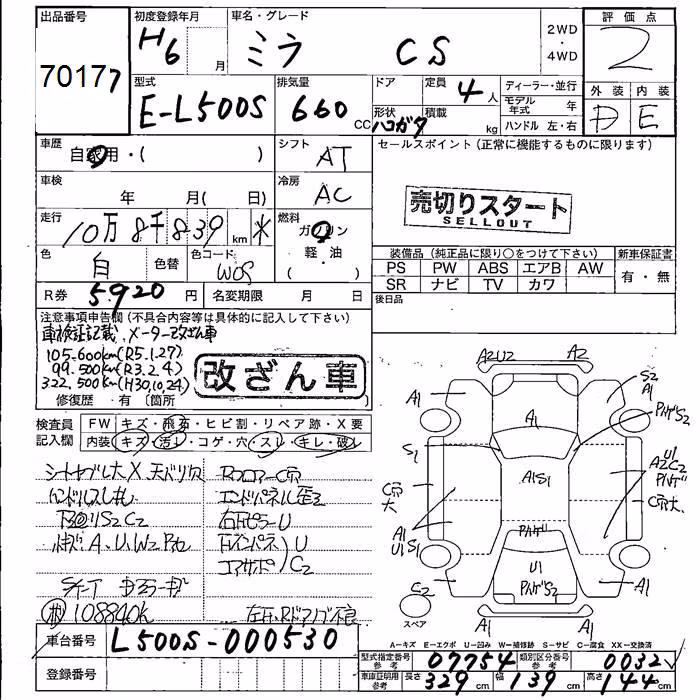 出品番号
70177
初度登録年月
H6 月
車名・グレード
ミラ CS
2WD
・
4WD
評価点
2
外装 内装
D E
型式
E-L500S
排気量
660 CC
ドア
形状
ハコガタ
定員
4人
積載
kg
ディーラー・並行
モデル年式 年
ハンドル 左・右
車歴
自家用・( )
シフト
AT
セールスポイント(正常に機能するものに限ります)
車検
年 月( 日)
冷房
AC
売切りスタート
SELLOUT
走行
10万8千839 km *
燃料
ガソリン
軽・油
( )
色
白
色替
色コード
W05
装備品(純正品に限り○をつけて下さい)
新車保証書
PS PW ABS エアB AW
SR ナビ TV カワ
有・無
R券
5920円
名変期限 月 日
後日品
注意事項申告欄(不具合内容等は具体的に記入して下さい)
車検証記載、メーター改ざん車
105.600km(R5.1.27)
99.500km(R3.2.4)
322.500km(H30.10.24)
改ざん車
修復歴・有(箇所
検査員
記入欄
FW キズ・飛石・ヒビ割・リペア跡・X要
内装 キズ・汚レ・コゲ・穴・スレ・キレ・破レ
エンドパネル歪
下回りS2C2
A、U、W2
108840k
車台番号
L500S-000530
登録番号
A2U2
A2
A1
S2
A1
S1
A1S1
U1
A2C2
C穴
大
C穴大
A1
U1S1
U1
A1
A1
C2
スペア
A-キズ E-エクボ U-凹み W-補修跡 S-サビ C-腐食 XX-交換済
型式指定番号
参考
07754
類別区分番号
参考
0032
車庫証明用
参考
長さ
329cm
幅
139cm
高さ
144cm